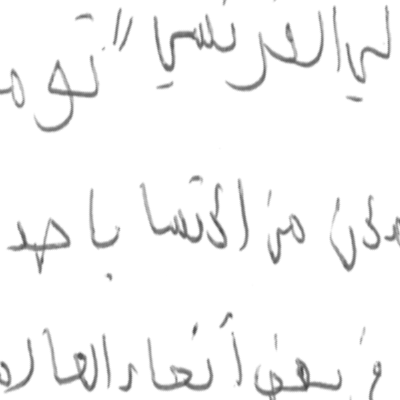 لي الفرنسي " توم
مكن من اكتسا با حد
في بعض أ نحاء العالم